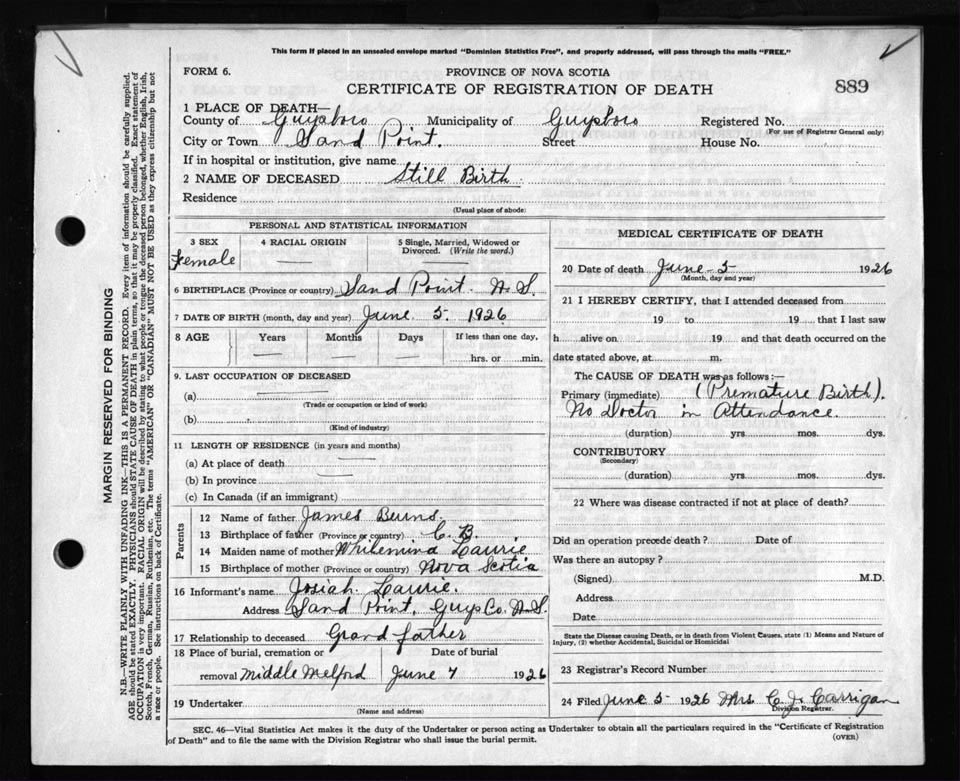 This form if placed in an unsealed envelope marked "Dominion Statistics Free", and properly addressed, will pass through the mails "FREE."
FORM 6.
PROVINCE OF NOVA SCOTIA
CERTIFICATE OF REGISTRATION OF DEATH
889
1 PLACE OF DEATH—
County of Guysboro Municipality of Guysboro Registered No.
(For use of Registrar General only)
City or Town Sand Point. Street House No.
If in hospital or institution, give name
2 NAME OF DECEASED Still Birth
Residence
(Usual place of abode)
PERSONAL AND STATISTICAL INFORMATION
3 SEX 4 RACIAL ORIGIN 5 Single, Married, Widowed or Divorced. (Write the word.)
Female
6 BIRTHPLACE (Province or country) Sand Point. N.S.
7 DATE OF BIRTH (month, day and year) June 5. 1926
8 AGE Years Months Days If less than one day,
hrs. or min.
9. LAST OCCUPATION OF DECEASED
(a)
(Trade or occupation or kind of work)
(b)
(Kind of industry)
11 LENGTH OF RESIDENCE (in years and months)
(a) At place of death
(b) In province
(c) In Canada (if an immigrant)
Parents
12 Name of father James Burns.
13 Birthplace of father (Province or country) C. B.
14 Maiden name of mother Whilemina Laurie
15 Birthplace of mother (Province or country) Nova Scotia
16 Informant's name Josiah Laurie.
Address Sand Point, Guys Co. N.S.
17 Relationship to deceased Grand father
18 Place of burial, cremation or removal Date of burial
Middle Melford June 7 1926
19 Undertaker
(Name and address)
MEDICAL CERTIFICATE OF DEATH
20 Date of death June 5 1926
(Month, day and year)
21 I HEREBY CERTIFY, that I attended deceased from
19 to 19 that I last saw
h alive on 19 and that death occurred on the
date stated above, at m.
The CAUSE OF DEATH was as follows:—
Primary (immediate) (Premature Birth).
No Doctor in Attendance.
(duration) yrs. mos. dys.
CONTRIBUTORY
(Secondary)
(duration) yrs. mos. dys.
22 Where was disease contracted if not at place of death?
Did an operation precede death? Date of
Was there an autopsy?
(Signed) M.D.
Address
Date
State the Disease causing Death, or in death from Violent Causes, state (1) Means and Nature of
Injury, (2) whether Accidental, Suicidal or Homicidal
23 Registrar's Record Number
24 Filed June 5 1926 Mrs C. J. Carrigan
Division Registrar.
SEC. 46—Vital Statistics Act makes it the duty of the Undertaker or person acting as Undertaker to obtain all the particulars required in the "Certificate of Registration
of Death" and to file the same with the Division Registrar who shall issue the burial permit.
(OVER)
MARGIN RESERVED FOR BINDING
N.B.—WRITE PLAINLY WITH UNFADING INK—THIS IS A PERMANENT RECORD. Every item of information should be carefully supplied.
AGE should be stated EXACTLY. PHYSICIANS should STATE CAUSE OF DEATH in plain terms, so that it may be properly classified. Exact statement of
OCCUPATION is very important. RACIAL ORIGIN will be described by stating to what people or tongue the deceased person belonged, whether English, Irish,
Scotch, French, German, Russian, Ruthenian, etc. The terms "AMERICAN" OR "CANADIAN" MUST NOT BE USED as they express citizenship but not
a race or people. See instructions on back of Certificate.